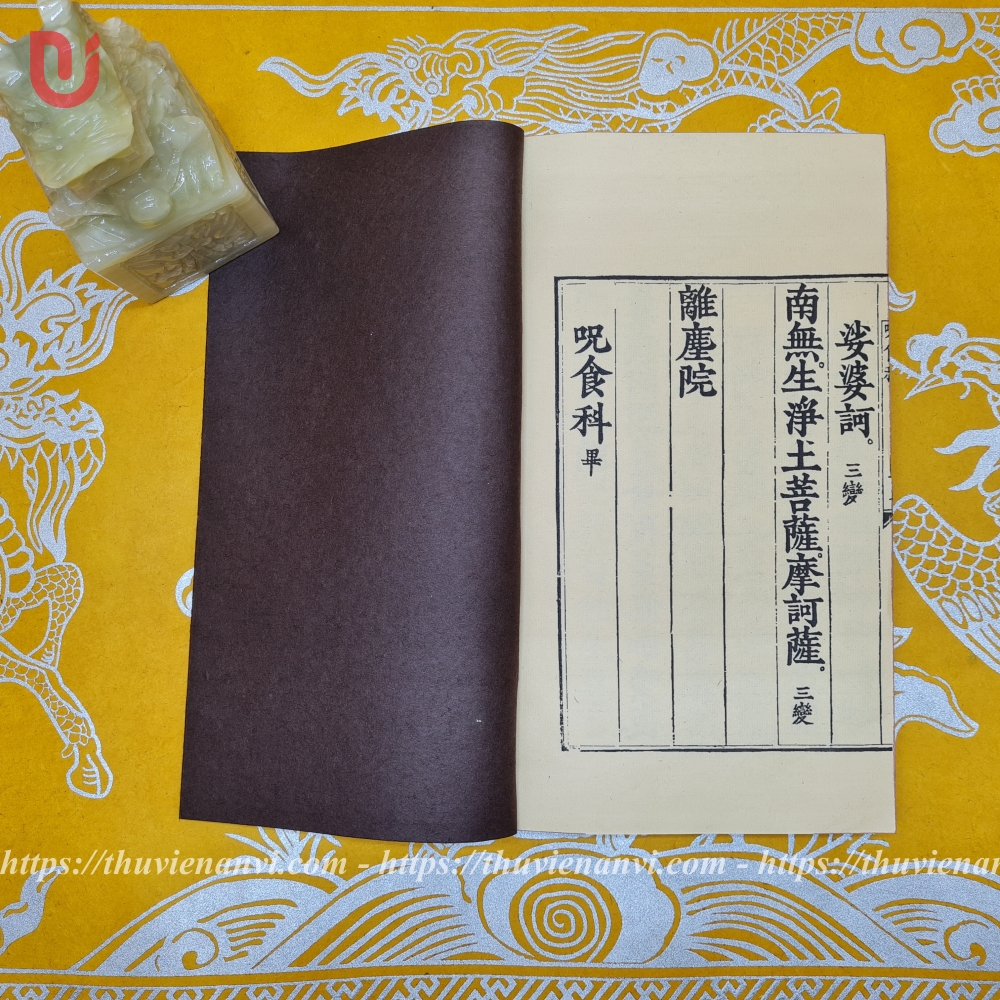 娑婆訶。三變
南無。生淨土菩薩。摩訶薩。三變
離塵院
呪食科畢
https://thuvienanvi.com - https://thuvienanvi.com - https://thuvienan